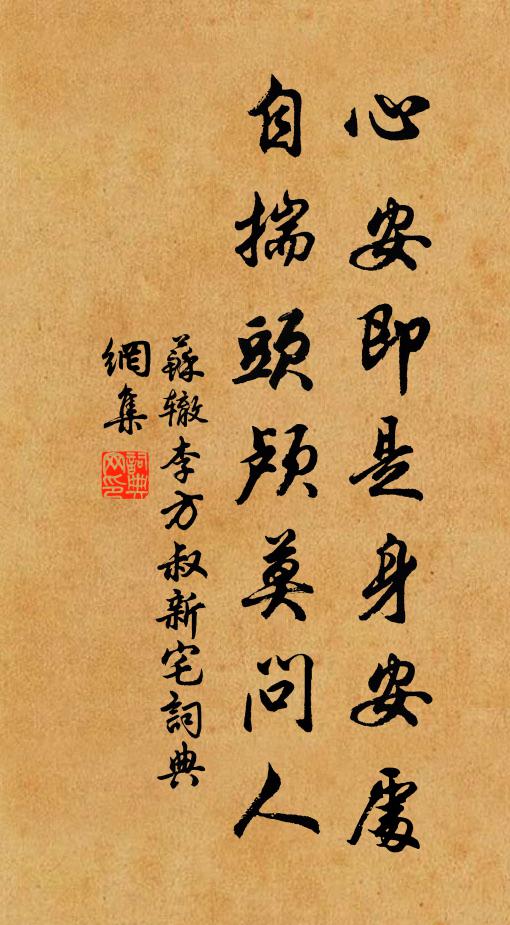 心安即是身安處
自揣頭颅莫問人
蘇辙李方叔新宅詞典
網集
詞典網印